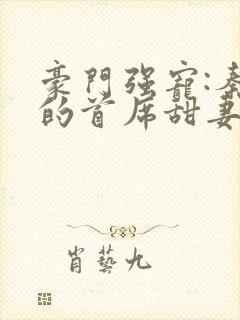 豪門强寵:秦
的首席甜妻
肖藝九